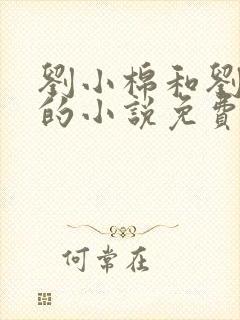 劉小棉和劉
的小說免費
何常在